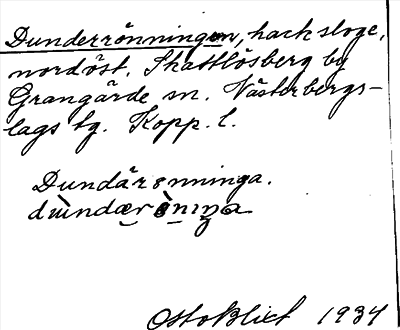 Dunderrönningen, hacksloge,
nordöst. Skattlösberg by
Grangärde sn. Västerbergs-
lags tg. Kopp. l.
Dundärönninga.
1934